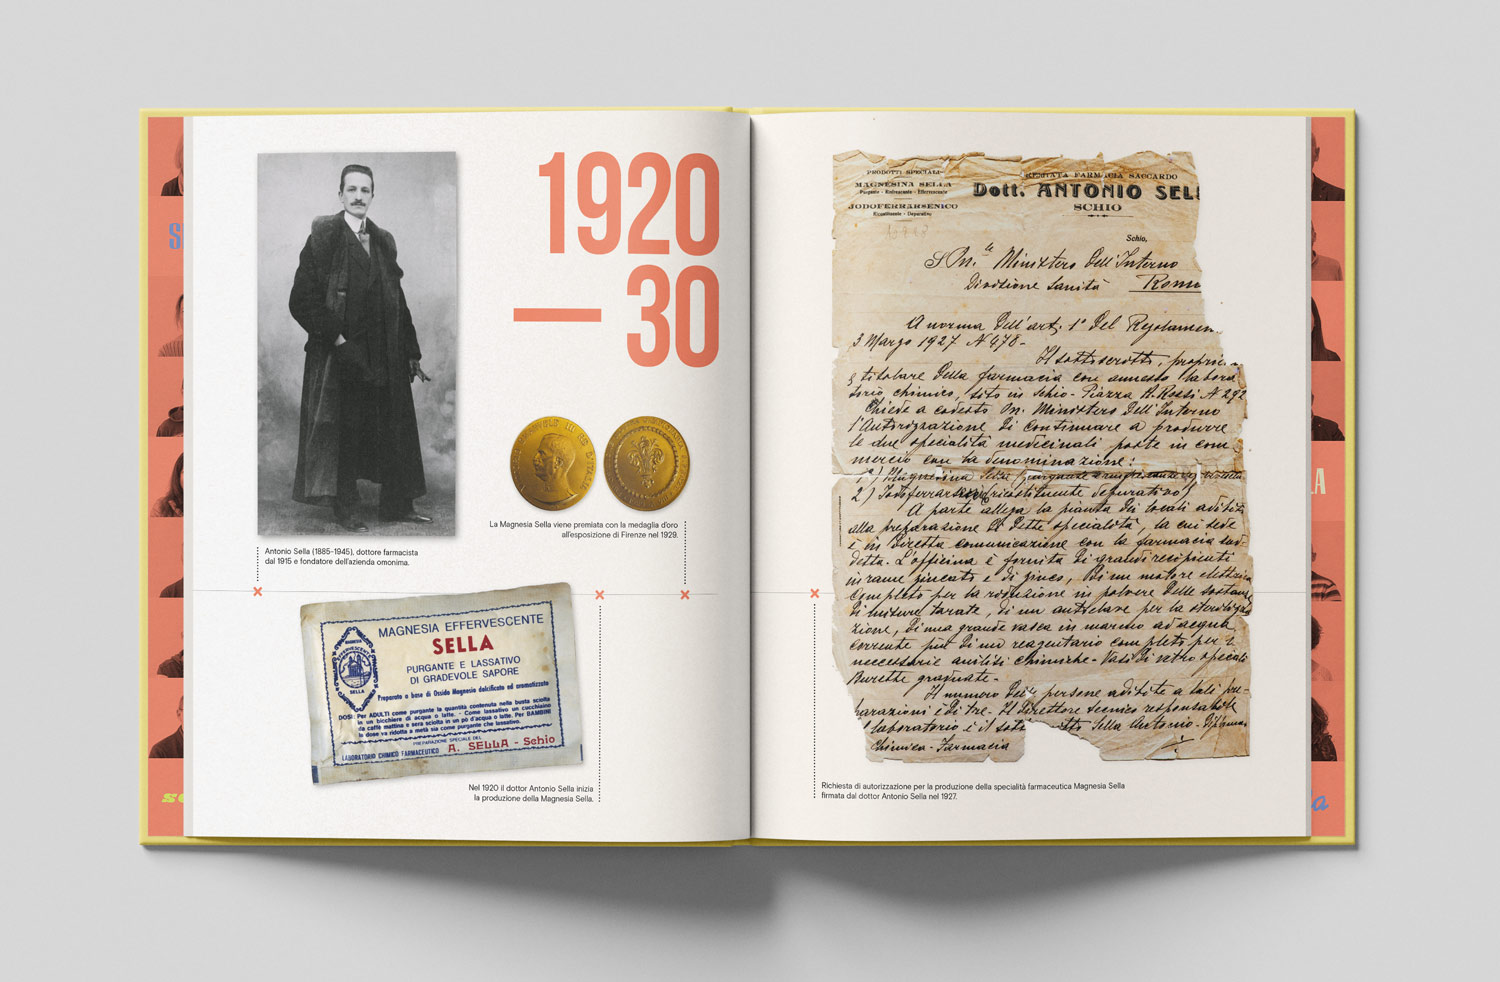 1920
—30
La Magnesia Sella viene premiata con la medaglia d'oro
all'esposizione di Firenze nel 1929.
Antonio Sella (1885-1945), dottore farmacista
dal 1915 e fondatore dell'azienda omonima.
MAGNESIA EFFERVESCENTE
SELLA
PURGANTE E LASSATIVO
DI GRADEVOLE SAPORE
Preparato a base di Ossido Magnesio dolcificato ed aromatizzato
DOSI: Per ADULTI come purgante la quantità contenuta nella busta sciolta
in un bicchiere di acqua o latte. - Come lassativo un cucchiaino
da caffè mattina e sera sciolta in un pò d'acqua o latte. Per BAMBINI
la dose va ridotta a metà sia come purgante che lassativo.
PREPARAZIONE SPECIALE DEL
LABORATORIO CHIMICO FARMACEUTICO A. SELLA - Schio
MAGNESIA
EFFERVESCENTE
SELLA
Nel 1920 il dottor Antonio Sella inizia
la produzione della Magnesia Sella.
PRODOTTI SPECIALI
MAGNESINA SELLA
Purgante - Rinfrescante - Effervescente
JODOFERRARSENICO
Ricostituente - Depurativo
REMIATA FARMACIA SACCARDO
Dott. ANTONIO SEL
SCHIO
Schio,
On.le Ministero Dell'Interno
Divisione Sanità Roma
A norma Dell'art. 1° Del Regolamen
3 Marzo 1927 N 478-
Il sottoscritto, proprie
e titolare Della farmacia con annesso labora
torio chimico, sito in Schio - Piazza A. Rossi N 292
Chiede a codesto On. Ministero Dell'Interno
l'Autorizzazione Di continuare a produrre
le due specialità medicinali poste in com
mercio con la denominazione:
1°) Magnesina Sella
2°) Jodoferrarsenico (ricostituente depurativo)
A parte allega la pianta Dei locali adibiti
alla preparazione Di Dette specialità, la cui sede
è in Diretta comunicazione con la farmacia sud-
detta. L'officina è fornita Di grandi recipienti
in rame zincato e Di zinco, Di un motore elettrico
completo per la riduzione in polvere Delle sostanze
Di misure tarate, Di un autoclave per la sterilizza
zione, Di una grande vasca in marmo ad acqua
corrente più Di un reagentario completo per le
necessarie analisi chimiche - Vasi Di vetro speciali
Burette graduate -
Il numero Delle persone adibite a tali pre-
parazioni è di tre. Il Direttore tecnico responsabile
laboratorio è il sott Sella Antonio - Diploma
Chimica - Farmacia
Richiesta di autorizzazione per la produzione della specialità farmaceutica Magnesia Sella
firmata dal dottor Antonio Sella nel 1927.